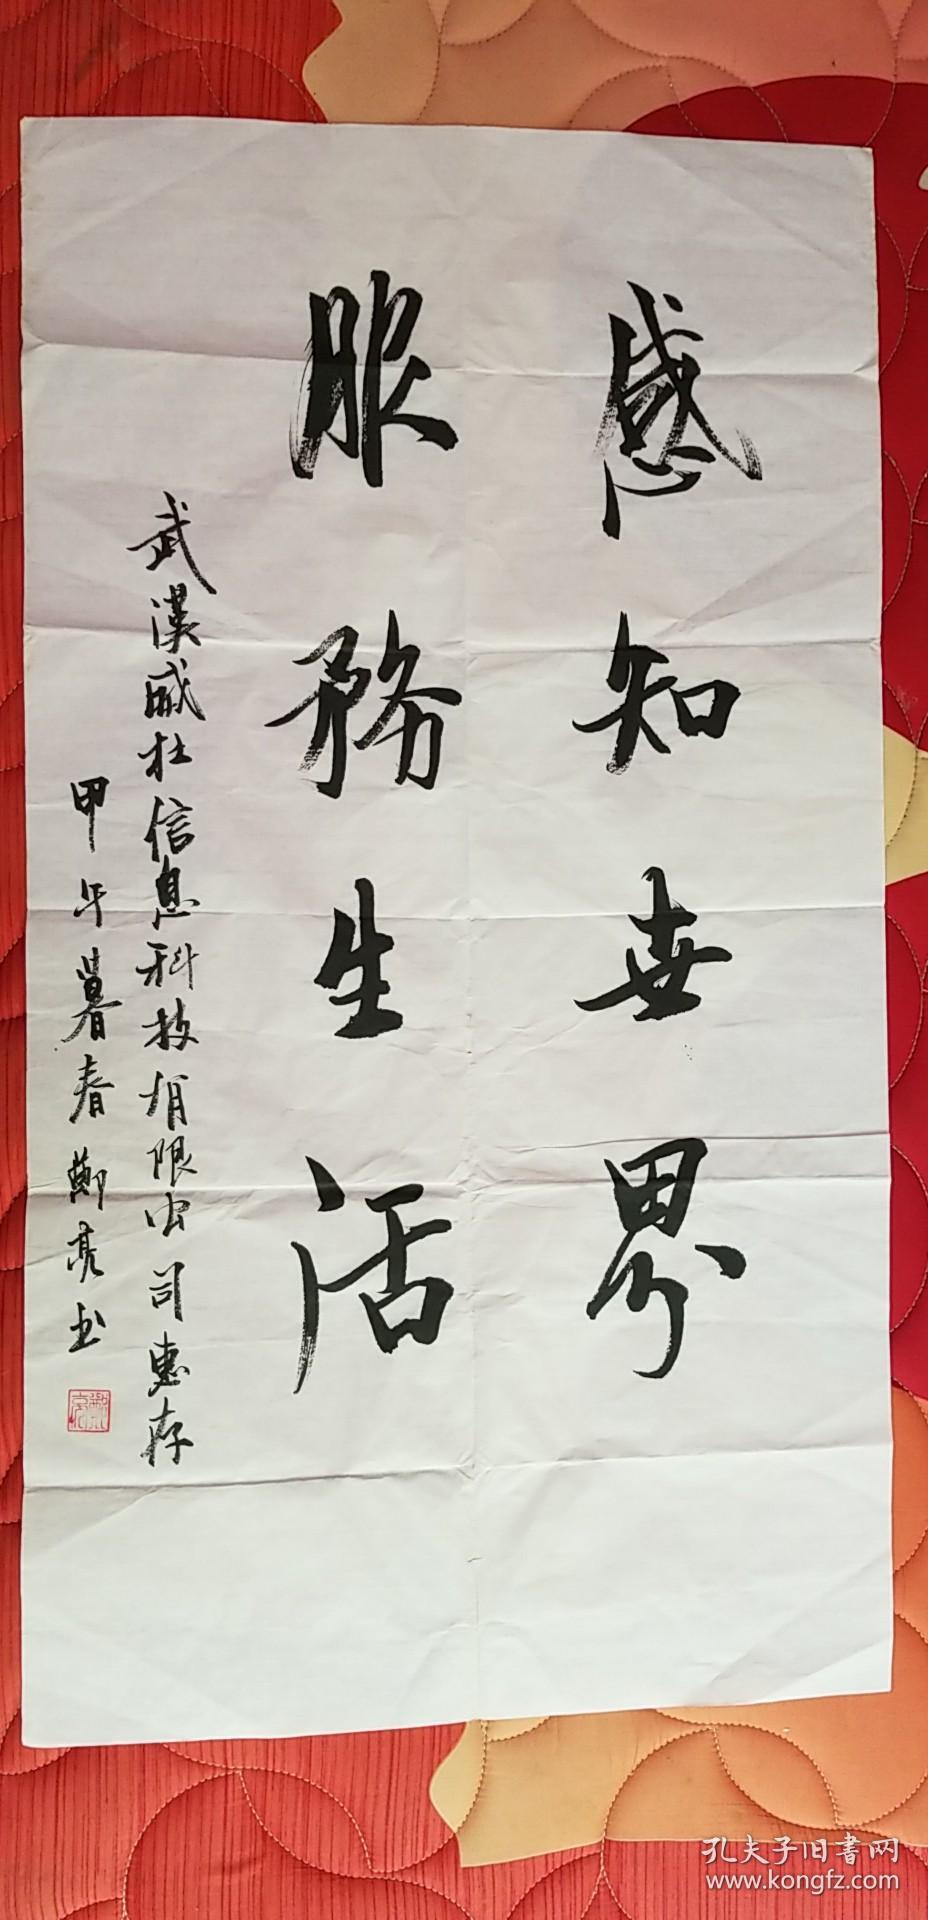 感知世界
服務生活
武漢威杜信息科技有限公司惠存
甲午暮春鄭亮书
孔夫子旧書网
www.kongfz.com